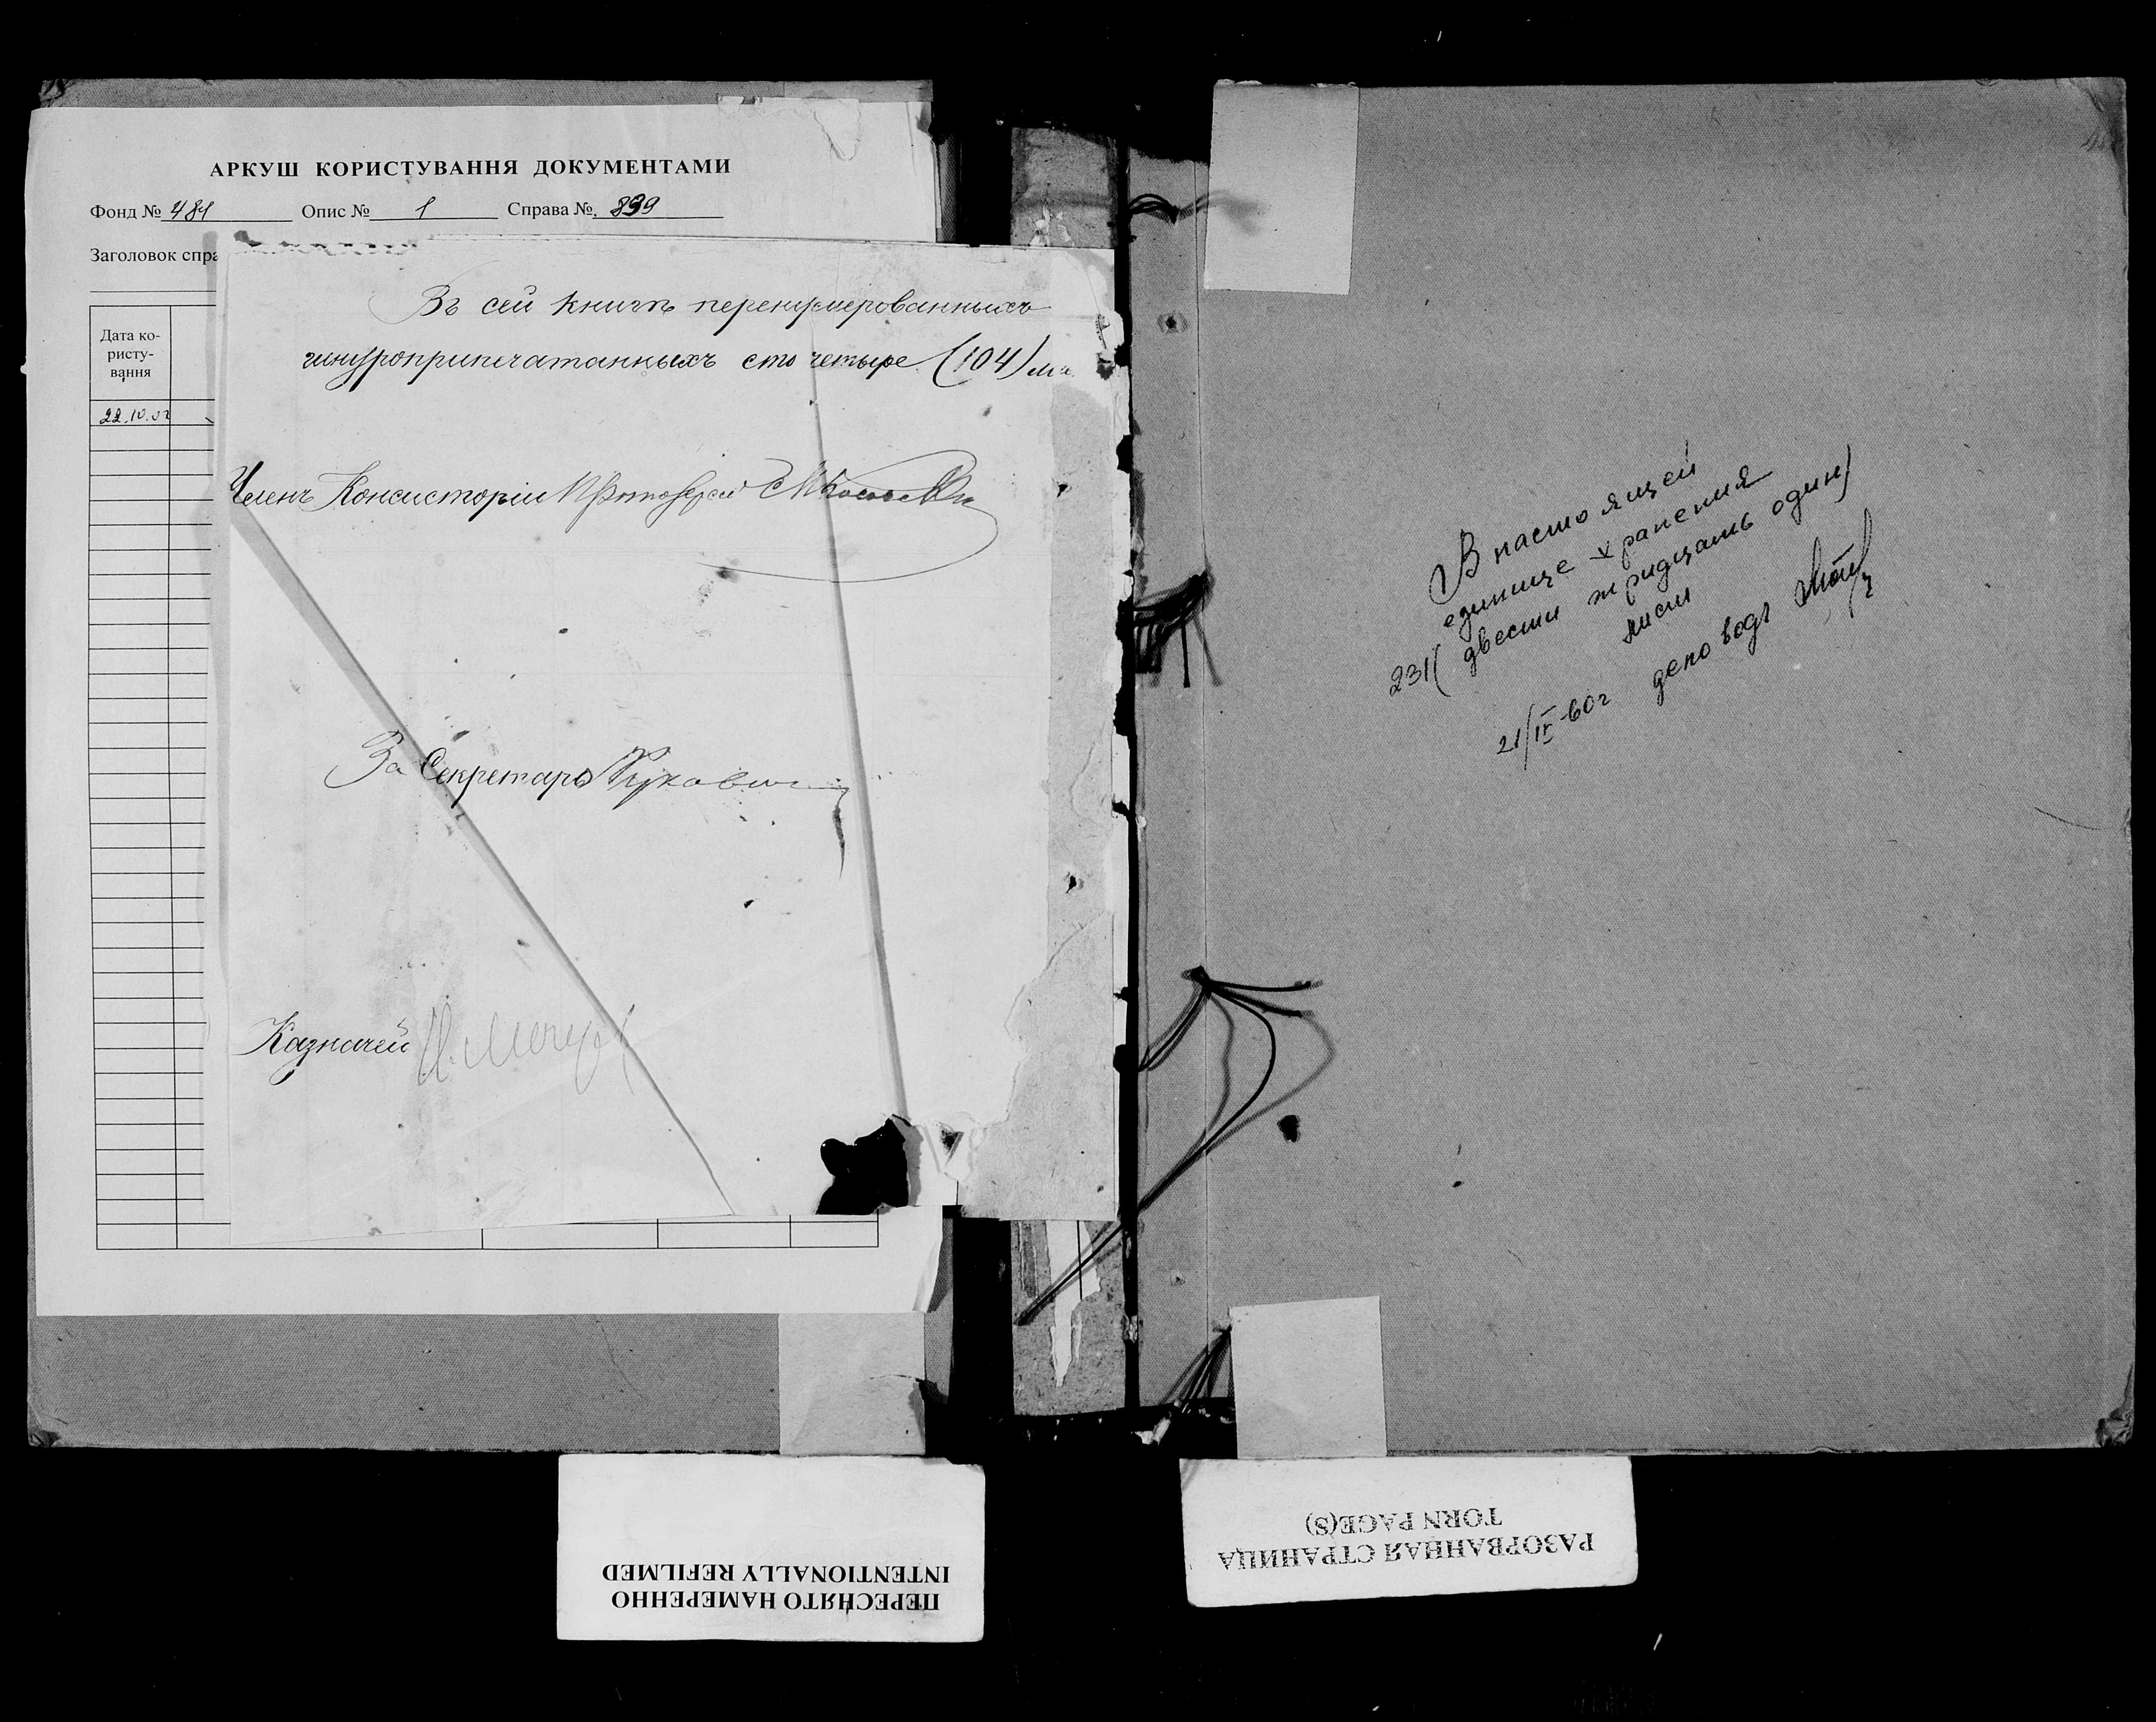 АРКУШ КОРИСТУВАННЯ ДОКУМЕНТАМИ
Фонд № 481 Опис № 1 Справа №. 839
Заголовок спра
Дата ко-
ристу-
вання
22.10.02
Въ сей книгѣ перенумерованныхъ
шнуроприпечатанныхъ сто четыре (104) ли
Членъ Консисторіи Протоіерей
За Секретаря
Казначей
В настоящей
единице хранения
231 (двести тридцать один)
лист
21/IV-60г деловод
ПЕРЕСНЯТО НАМЕРЕННО
INTENTIONALLY REFILMED
РАЗОРВАННАЯ СТРАНИЦА
TORN PAGE(S)